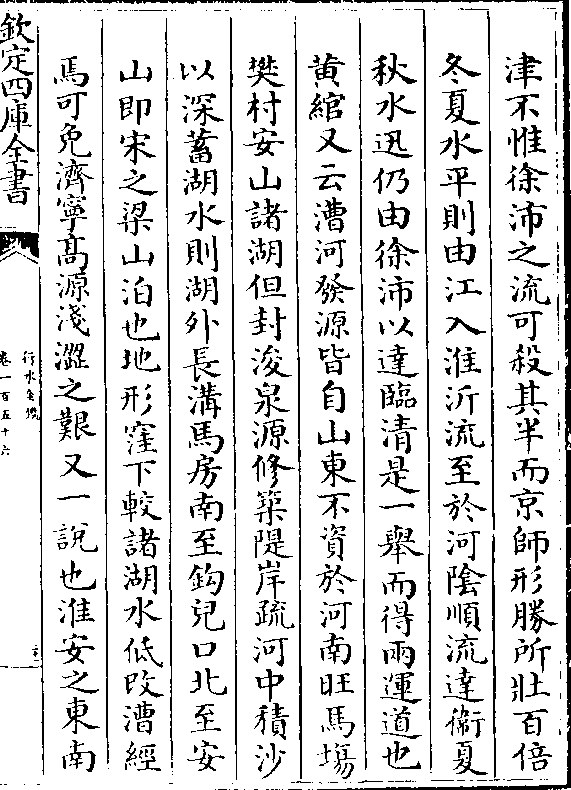 津不惟徐沛之流可殺其半而京師形勝所壯百倍
冬夏水平則由江入淮泝流至於河隂順流達衞夏
秋水迅仍由徐沛以達臨清是一舉而得兩運道也
黄綰又云漕河發源皆自山東不資於河南旺馬塲
樊村安山諸湖但封浚泉源修築隄岸疏河中積沙
以深蓄湖水則湖外長溝馬房南至鈎兒口北至安
山即宋之梁山泊也地形窪下較諸湖水低改漕經
焉可免濟寧髙源淺澀之艱又一說也淮安之東南
欽定四庫全書
行水金鑑
卷一百五十六